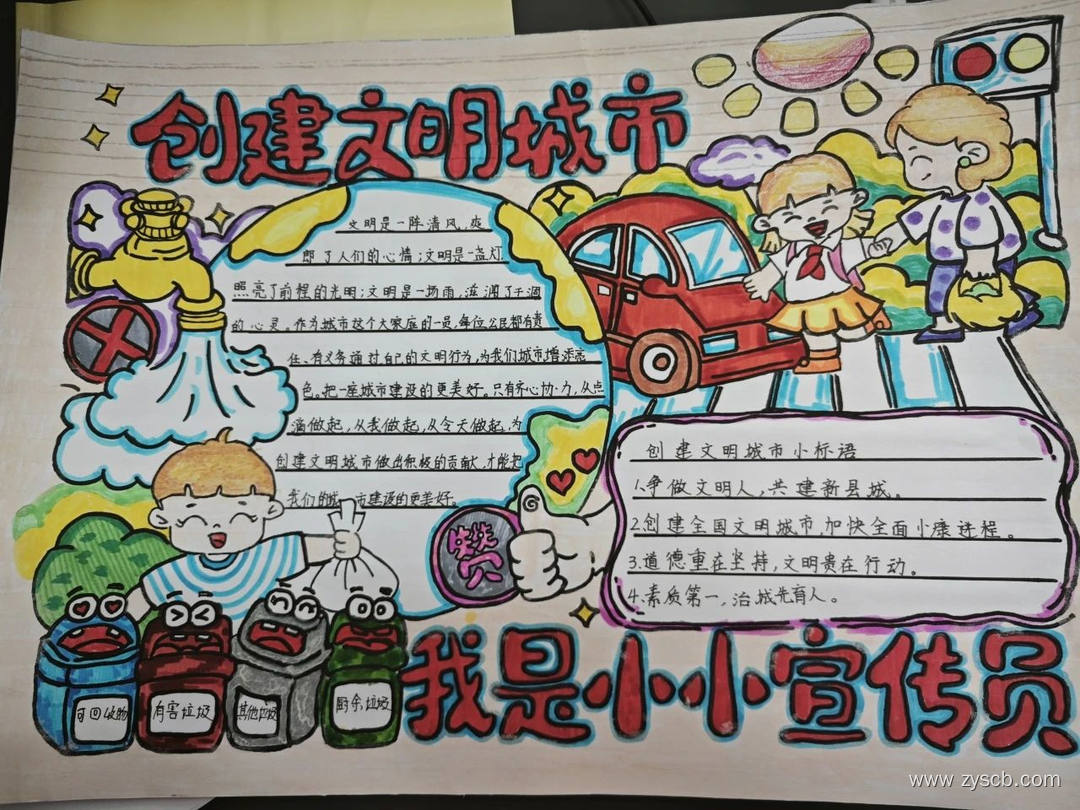 创建文明城市
文明是一阵清风,爽
郎了人们的心情;文明是一盏灯
照亮了前程的光明;文明是一场雨,滋润了干涸
的心灵。作为城市这个大家庭的一员,每位公民都有责
任、有义务通过自己的文明行为,为我们城市增添亮
色。把一座城市建设的更美好。只有齐心协力,从点
滴做起,从我做起,从今天做起,为
创建文明城市做出积极的贡献,才能把
我们的城市建设的更美好。
赞
创建文明城市小标语
1.争做文明人,共建新县城。
2.创建全国文明城市,加快全面小康进程。
3.道德重在坚持,文明贵在行动。
4.素质第一,治城先育人。
可回收物
有害垃圾
其他垃圾
厨余垃圾
我是小小宣传员
www.zyscb.com